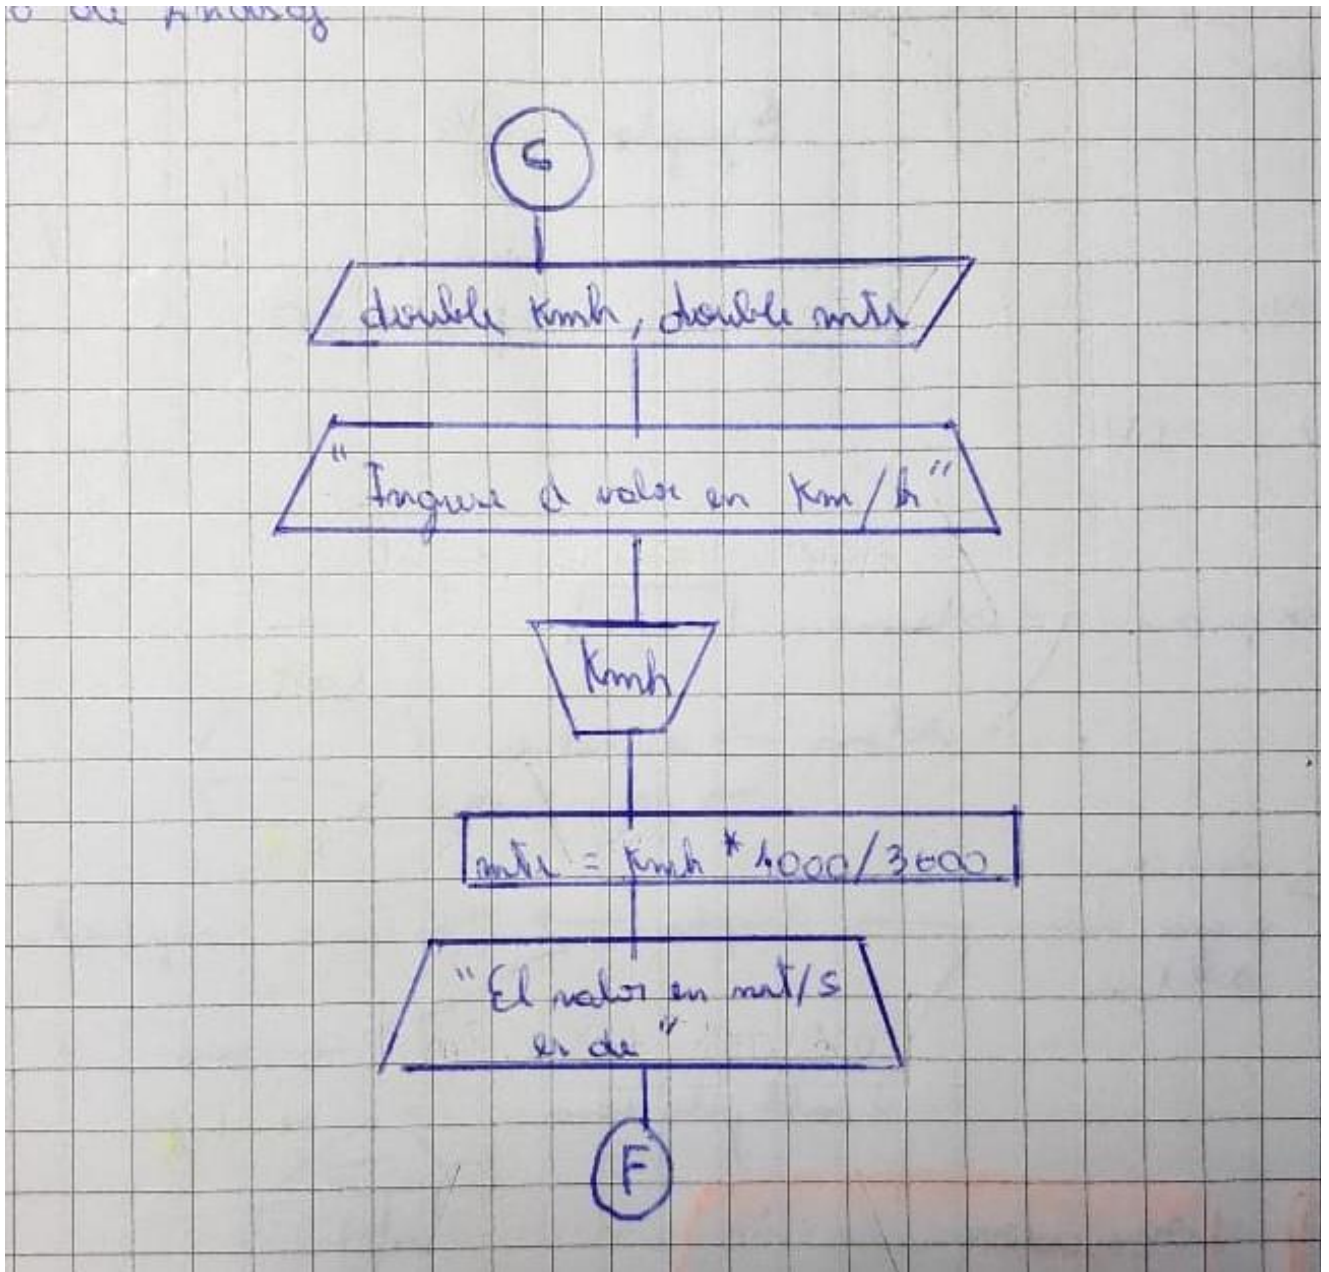 o de
C
double Kmh, double mts
"Ingrese el valor en Km/h"
Kmh
mts = Kmh * 1000/3600
"El valor en mt/s
es de"
F